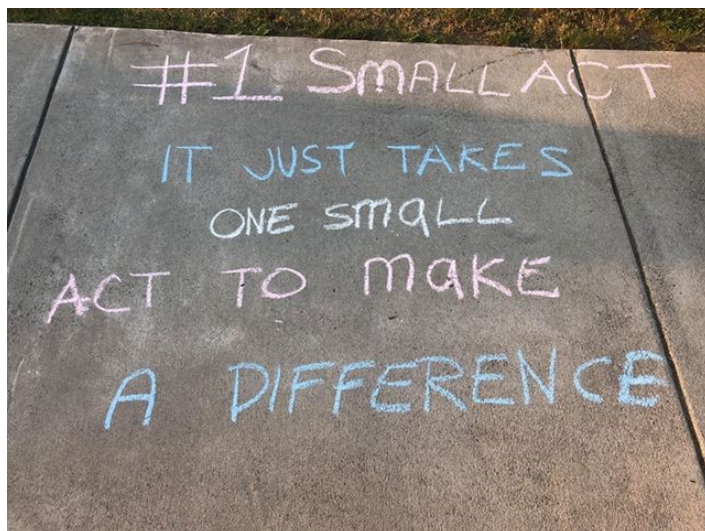 #1 SmaLL ACT
IT JUST TAKES
ONE SmaLL
ACT TO maKE
A DIFFERENCE